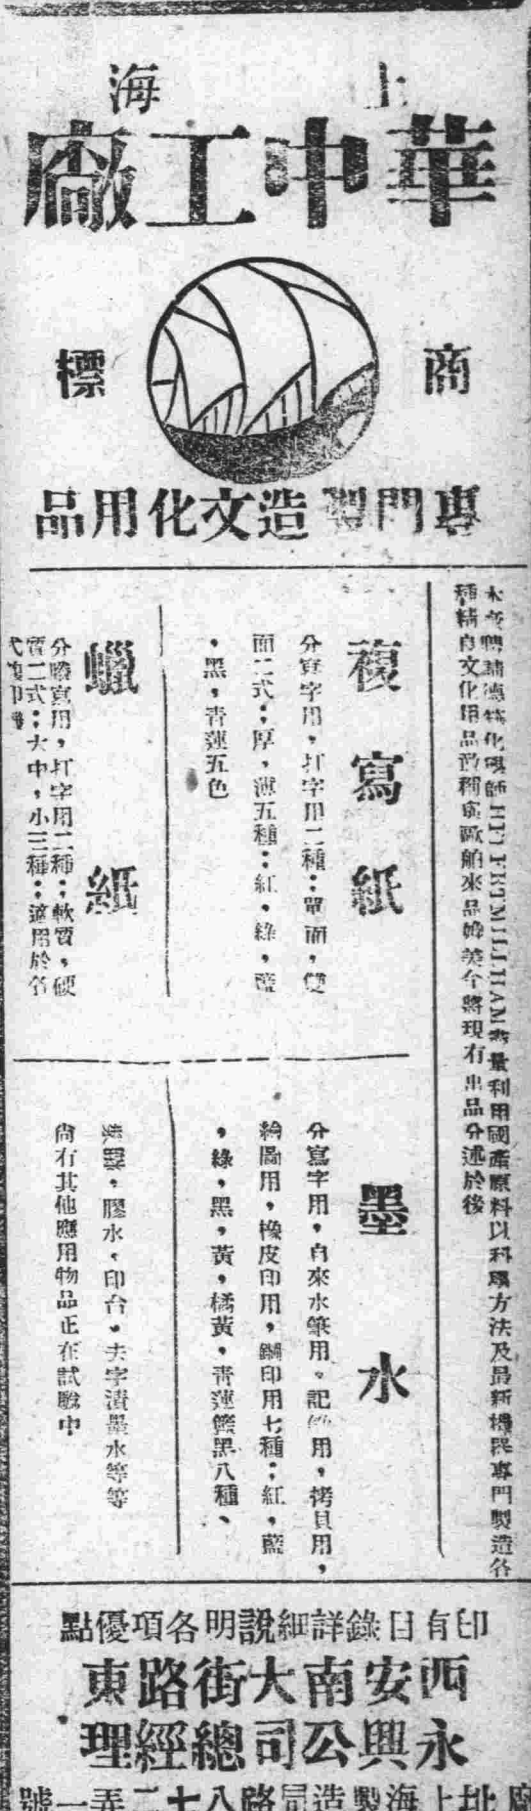 上海
華中工廠
商標
專門製造文化用品
本廠聘請德籍化學師
盡量利用國產原料以科學方法及最新機器專門製造各
種精良文化用品
歐舶來品媲美今將現有出品分述於後
複寫紙
分寫字用，打字用二種；單面，雙
面二式；厚，薄五種；紅，綠，藍
，黑，青蓮五色
蠟紙
分謄寫用，打字用二種；軟質，硬
質二式；大中，小三種；適用於各
式複印機
墨水
分寫字用，自來水筆用。記錄用，拷貝用，
繪圖用，橡皮印用，鋼印用七種；紅，藍
，綠，黑，黃，橘黃，青蓮籃黑八種、
膠水，印台，去字漬墨水等等
尚有其他應用物品正在試驗中
印有目錄詳細說明各項優點
西安南大街路東
永興公司總經理
廠址上海製造局路八十二弄一號